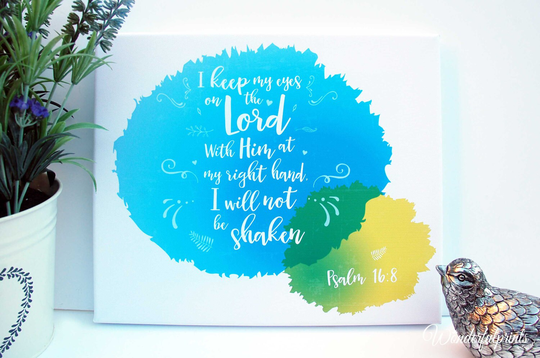 I keep my eyes
on the
Lord
With Him at
my right hand.
I will not
be shaken
Psalm 16:8
Wonderfulprints